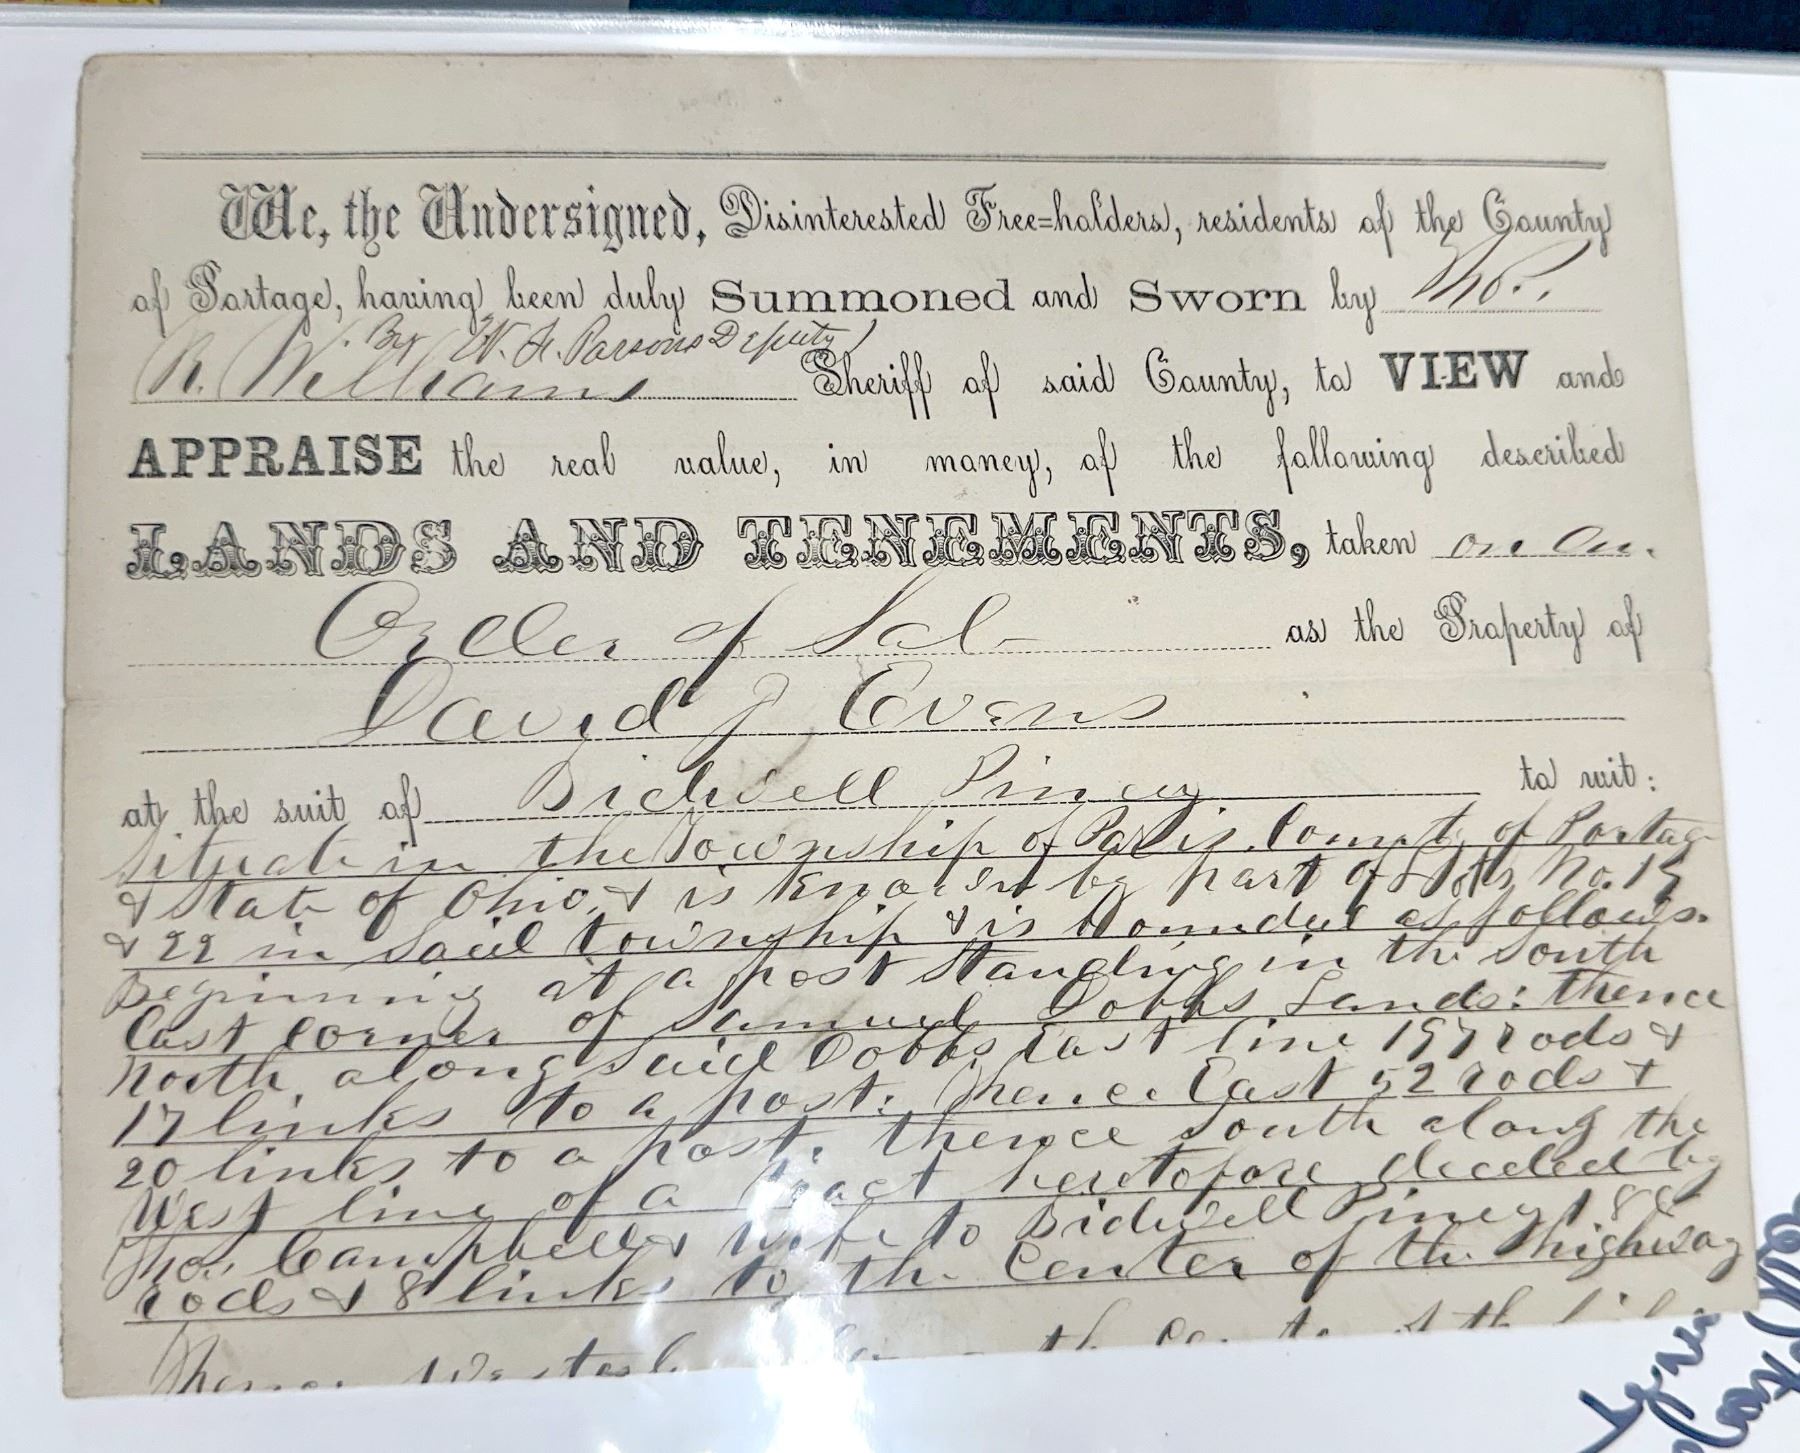 We, the Undersigned, Disinterested Free=holders, residents of the County
of Portage, having been duly Summoned and Sworn by Tho.
By W. H. Parsons Deputy
R. Williams Sheriff of said County, to VIEW and
APPRAISE the real value, in money, of the following described
LANDS AND TENEMENTS, taken on an
Order of Sal
as the Property of
David J Evans
at the suit of Bidwell Pincy to wit:
Situate in the Township of Paris, County of Portage
& State of Ohio, & is known by part of Lots No. 15
& 22 in said township & is bounded as follows.
Beginning at a post standing in the South
East corner of Samuel Dobbs Lands: thence
North along said Dobbs East line 197 rods &
17 links to a post: thence East 52 rods &
20 links to a post: thence South along the
West line of a tract heretofore deeded by
Tho. Campbell & wife to Bidwell Pincy 188
rods & 8 links to the center of the highway
Thence Westerly